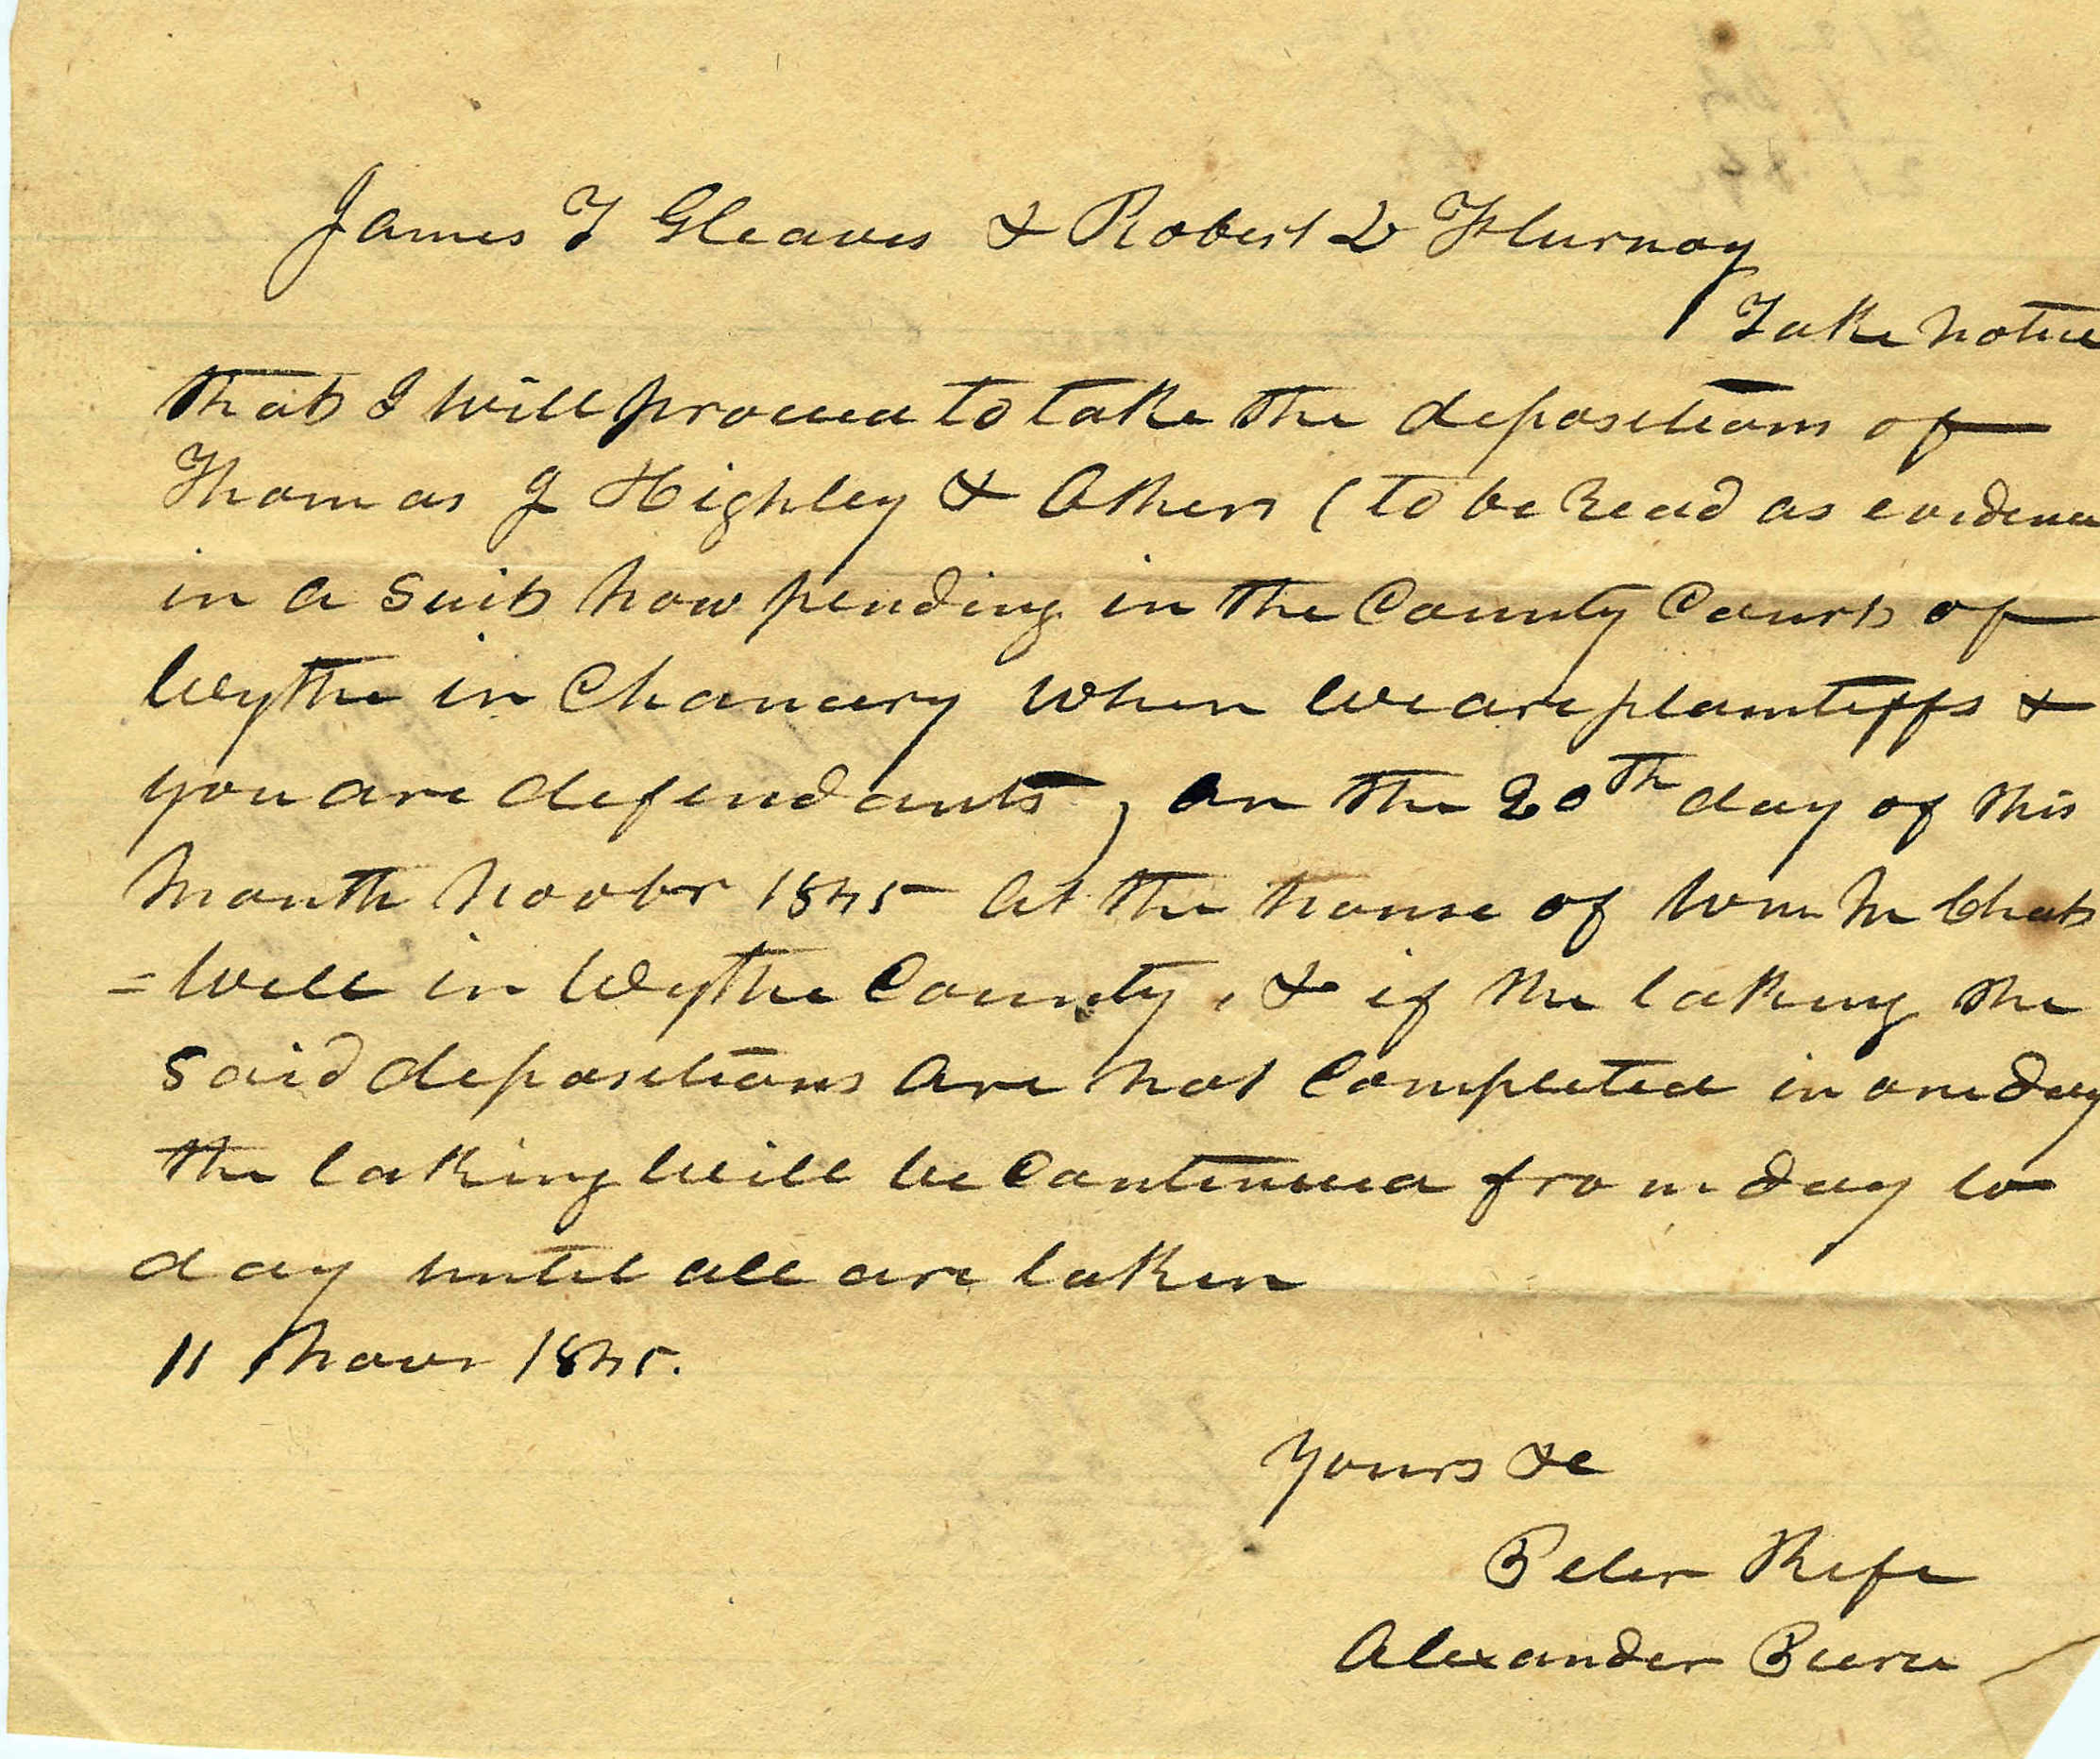 James T Gleaves & Robert D Flurnoy
Take notice
that I will proceed to take the depositions of
Thomas J Highley & Others (to be Read as evidence
in a Suit now pending in the County Court of
Wythe in Chancery when we are plaintiffs &
you are defendants, on the 20th day of this
Month Novbr 1845 at the house of Wm M Chat
=well in Wythe County, & if the taking the
said depositions are not Completed in one day
the taking will be Continued from day to
day until all are taken
11 Novr 1845.
Yours &c
Peter
Alexander